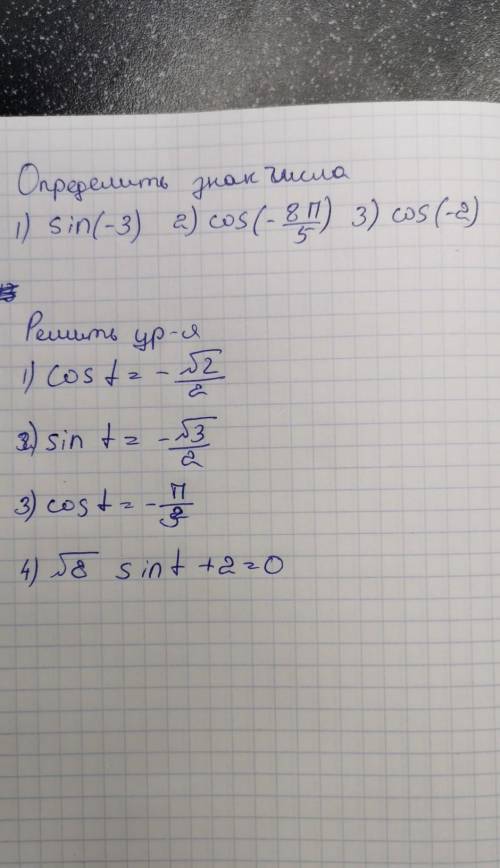 Определить знак числа
1) sin(-3) 2) cos(-8π/5) 3) cos(-2)
Решить ур-я
1) cos t = -√2/2
2) sin t = -√3/2
3) cos t = -π/3
4) √8 sin t + 2 = 0